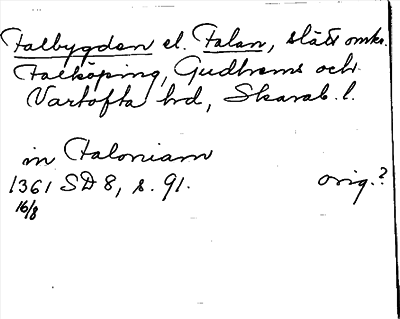 Falbygden el. Falan, slätt omkr.
Falköping, Gudhems och
Vartofta hd, Skarab. l.
in Faloniam
1361 SD 8, s. 91. orig.?
16/8